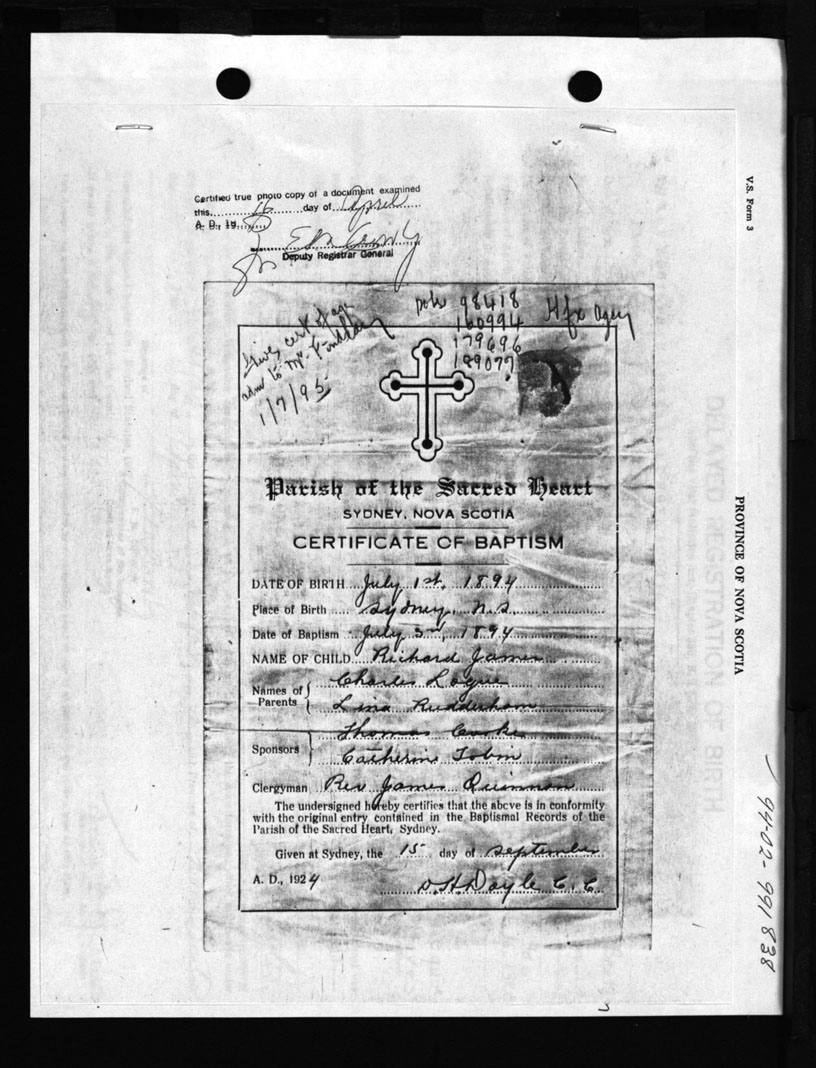 Certified true photo copy of a document examined
this 16 day of April
A. D., 19
Deputy Registrar General
V.S. Form 3
PROVINCE OF NOVA SCOTIA
98418
160994
179696
189077
Hfx Agey
Gives cert of age
adm to Mr. Findlay
1/7/95
Parish of the Sacred Heart
SYDNEY, NOVA SCOTIA
CERTIFICATE OF BAPTISM
DATE OF BIRTH July 1st, 1894
Place of Birth Sydney, N.S.
Date of Baptism July 3rd, 1894
NAME OF CHILD Richard James
Names of Parents Charles Logue
Lina Rudderham
Sponsors Thomas Cooke
Catherine Tobin
Clergyman Rev James Quinnan
The undersigned hereby certifies that the above is in conformity
with the original entry contained in the Baptismal Records of the
Parish of the Sacred Heart, Sydney.
Given at Sydney, the 15 day of September
A. D., 1924
D. H. Doyle C. C.
94-02-991838
DELAYED REGISTRATION OF BIRTH